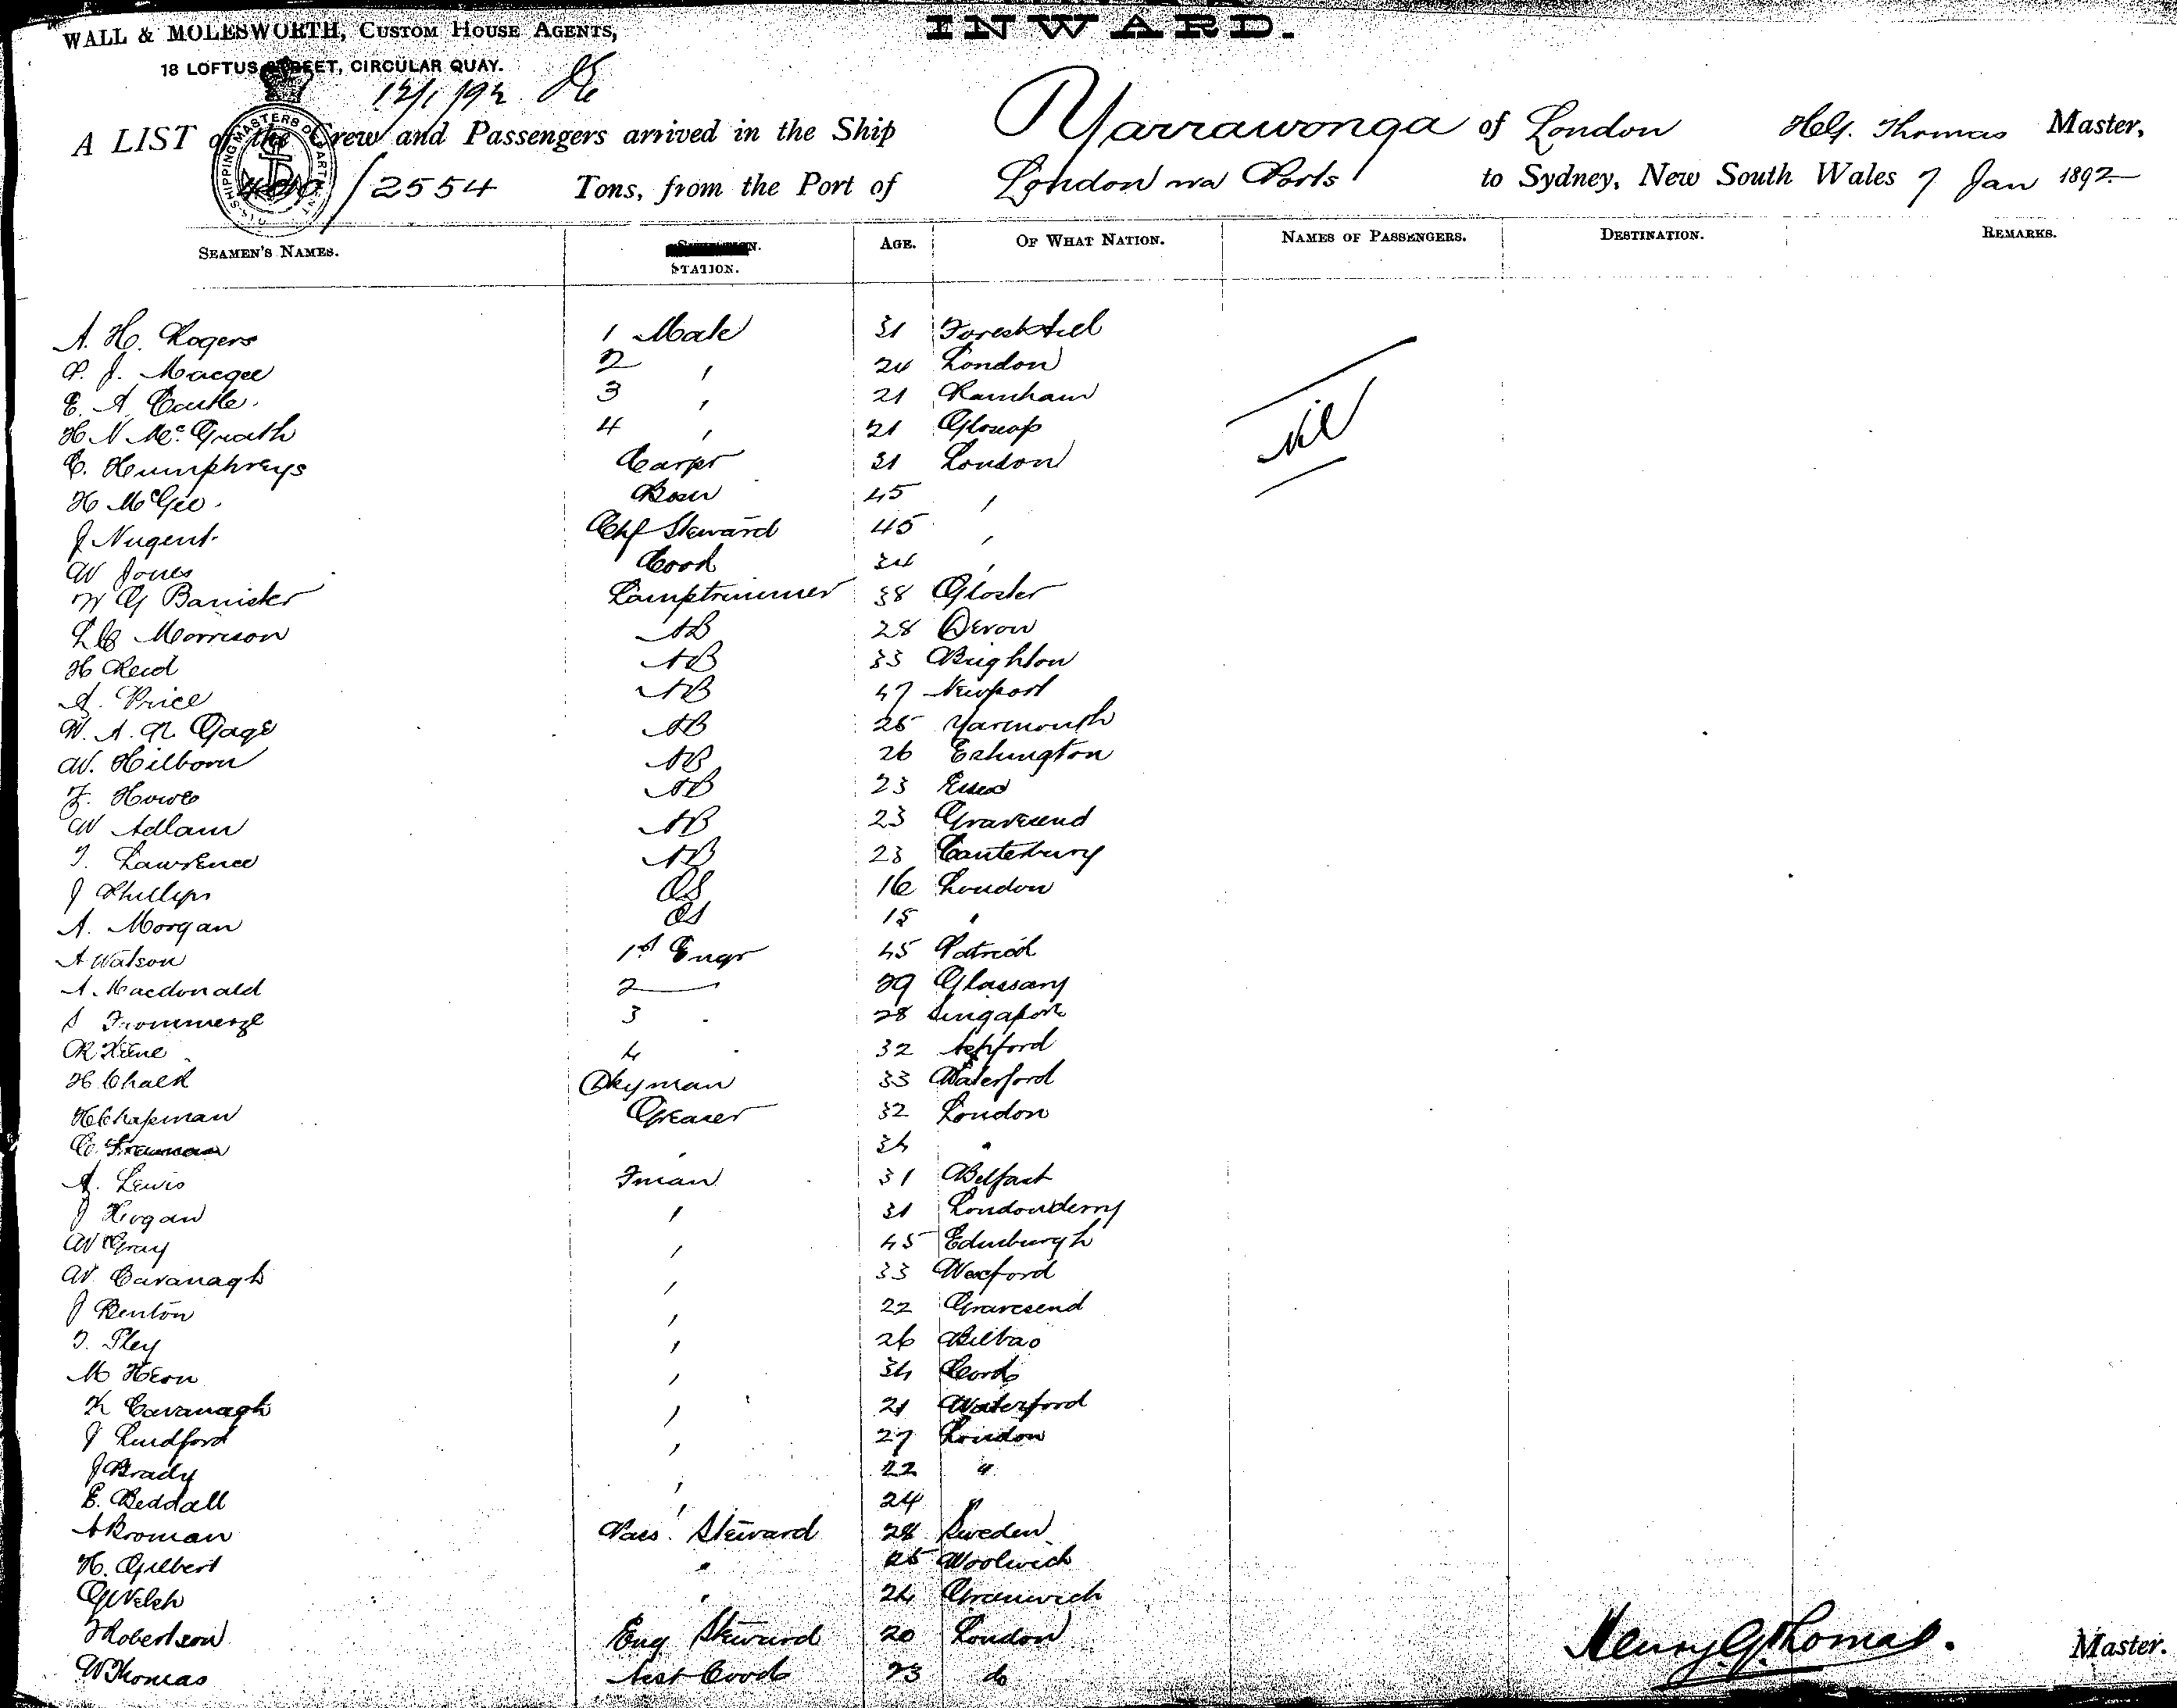 INWARD.
WALL & MOLESWORTH, CUSTOM HOUSE AGENTS,
18 LOFTUS STREET, CIRCULAR QUAY.
12/1/92
A LIST of the Crew and Passengers arrived in the Ship Yarrawonga of London Hy G. Thomas Master,
SHIPPING MASTERS DEPARTMENT
/2554 Tons, from the Port of London via Ports to Sydney, New South Wales 7 Jan 1892
SEAMEN'S NAMES. STATION. AGE. OF WHAT NATION. NAMES OF PASSENGERS. DESTINATION. REMARKS.
A. H. Rogers 1 Mate 31 Forest Hill
P. J. Macgee 2 " 24 London
E. A. Castle. 3 " 21 Rainham
H N Mc. Grath 4 " 21 Glossop
Nil
C. Humphreys Carpr 31 London
H McGee. Bosn 45 "
J Nugent. Chf Steward 45 "
W Jones Cook 34 "
W G Banister Lamptrimmer 38 Gloster
L C Morrison AB 28 Devon
H Reid AB 33 Brighton
A. Price AB 47 Newport
W. A. R. Gage AB 25 Yarmouth
W. Hilborn AB 26
F. Howe AB 23 Essex
W Adlam AB 23 Gravesend
T. Lawrence AB 23 Canterbury
J Phillips OS 16 London
A. Morgan OS 18 "
A Watson 1st Engr 45 Patrick
A. Macdonald 2 — 29 Glassary
3 " 28 Singapore
R Keene 4 " 32
H. Chalk Dkyman 33 Waterford
H Chapman Greaser 32 London
C. Freeman " 34 "
A. Lewis Fman 31 Belfast
J Hogan " 31 Londonderry
W Gray " 45 Edinburgh
W. Cavanagh " 33 Wexford
J Benton " 22 Gravesend
T. Pley " 26 Bilbao
M Hern " 34 Cork
K Cavanagh " 21 Waterford
J Lundford " 27 London
J Brady " 22 "
E. Beddall " 24 "
A Broman Pass. Steward 28 Sweden
H. Gilbert " 25 Woolwich
G Welsh " 24 Greenwich
J Robertson Eng Steward 20 London
W Thomas Asst Cook 23 do
Henry G Thomas. Master.